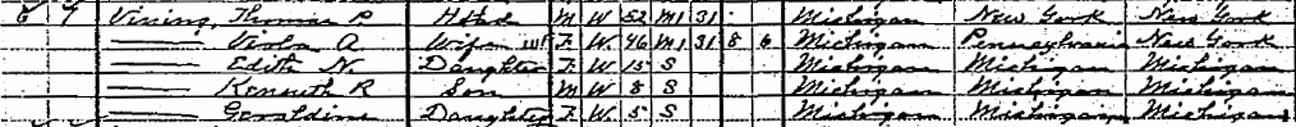 6 7 Vining, Thomas P Head M W 52 M1 31 Michigan New York New York
—— Viola A Wife F W. 46 M1 31 8 6 Michigan Pennsylvania New York
—— Edith N. Daughter F. W 15 S Michigan Michigan Michigan
—— Kenneth R Son M W 8 S Michigan Michigan Michigan
—— Geraldine Daughter F. W. 5 S Michigan Michigan Michigan